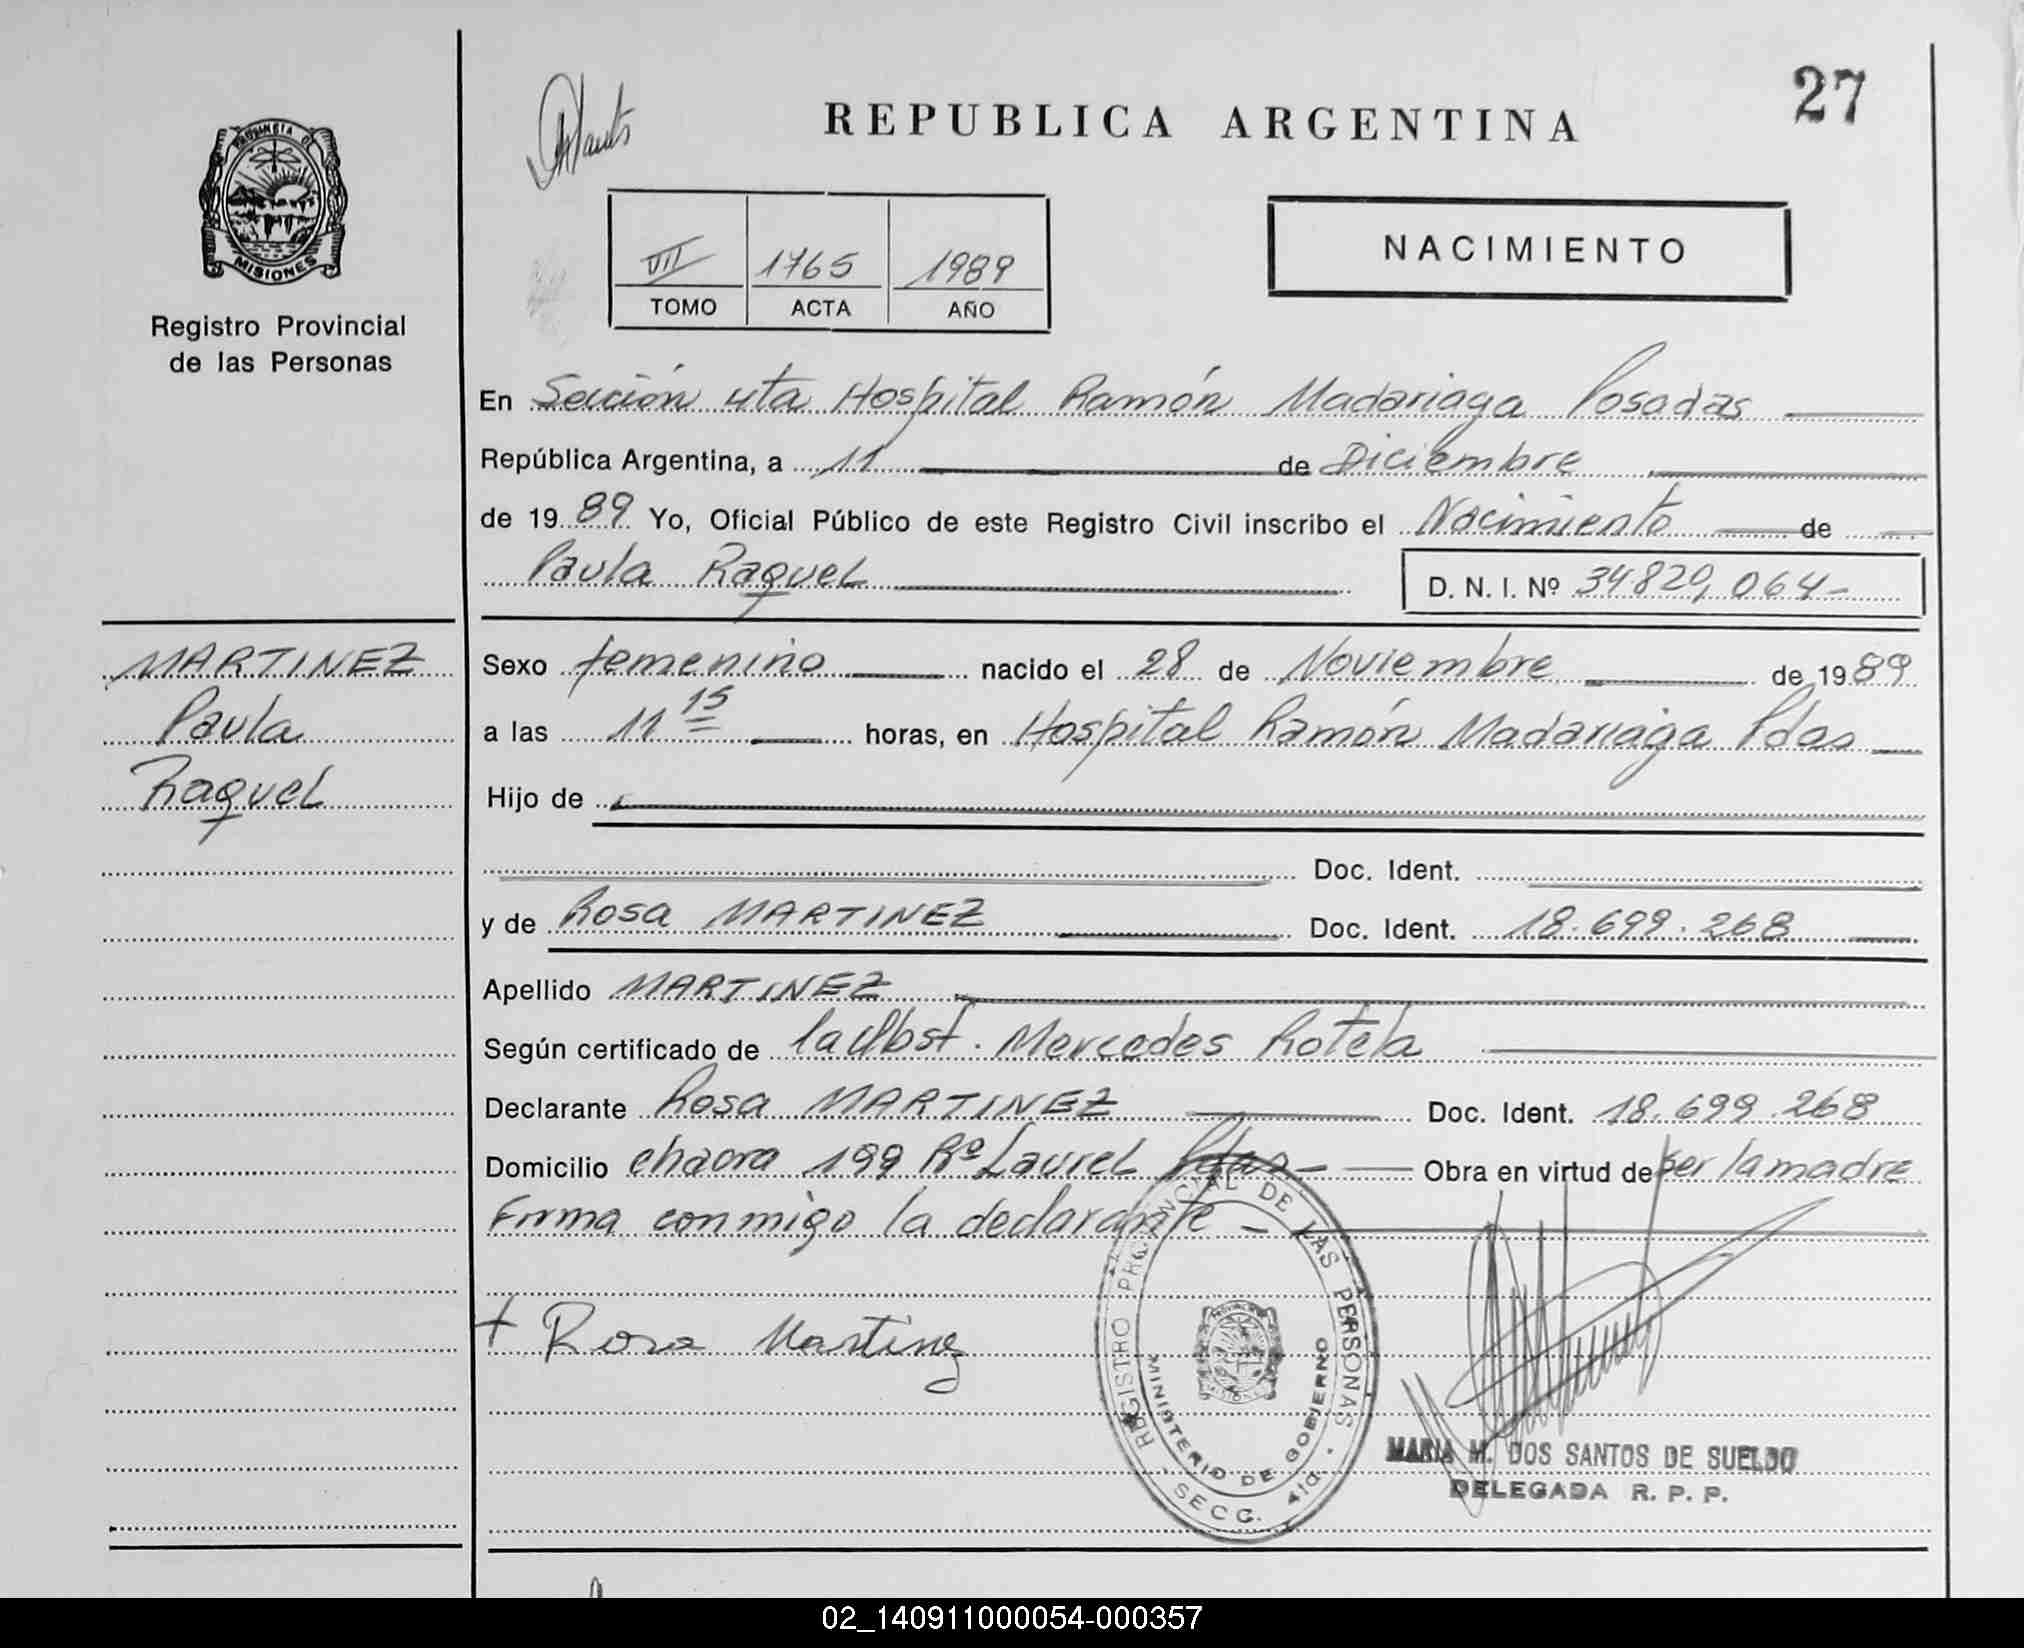 27
REPUBLICA ARGENTINA
PROVINCIA DE
MISIONES
Registro Provincial
de las Personas
NACIMIENTO
VII 1765 1989
TOMO ACTA AÑO
En Sección 4ta Hospital Ramón Madariaga Posadas
República Argentina, a 11 de Diciembre
de 1989 Yo, Oficial Público de este Registro Civil inscribo el Nacimiento de
Paula Raquel D. N. I. Nº 34829,064-
MARTINEZ
Paula
Raquel
Sexo femenino nacido el 28 de Noviembre de 1989
a las 11 15 horas, en Hospital Ramón Madariaga Pdas
Hijo de
Doc. Ident.
y de Rosa MARTINEZ Doc. Ident. 18.699.268
Apellido MARTINEZ
Según certificado de la Obst. Mercedes Rotela
Declarante Rosa MARTINEZ Doc. Ident. 18.699.268
Domicilio chacra 199 Bº Laurel Pdas- Obra en virtud de ser la madre
Firma conmigo la declarante -
+ Rosa Martinez
REGISTRO PROVINCIAL DE LAS PERSONAS
MINISTERIO DE GOBIERNO
SECC. 4ta.
MARIA M. DOS SANTOS DE SUELDO
DELEGADA R. P. P.
02_140911000054-000357